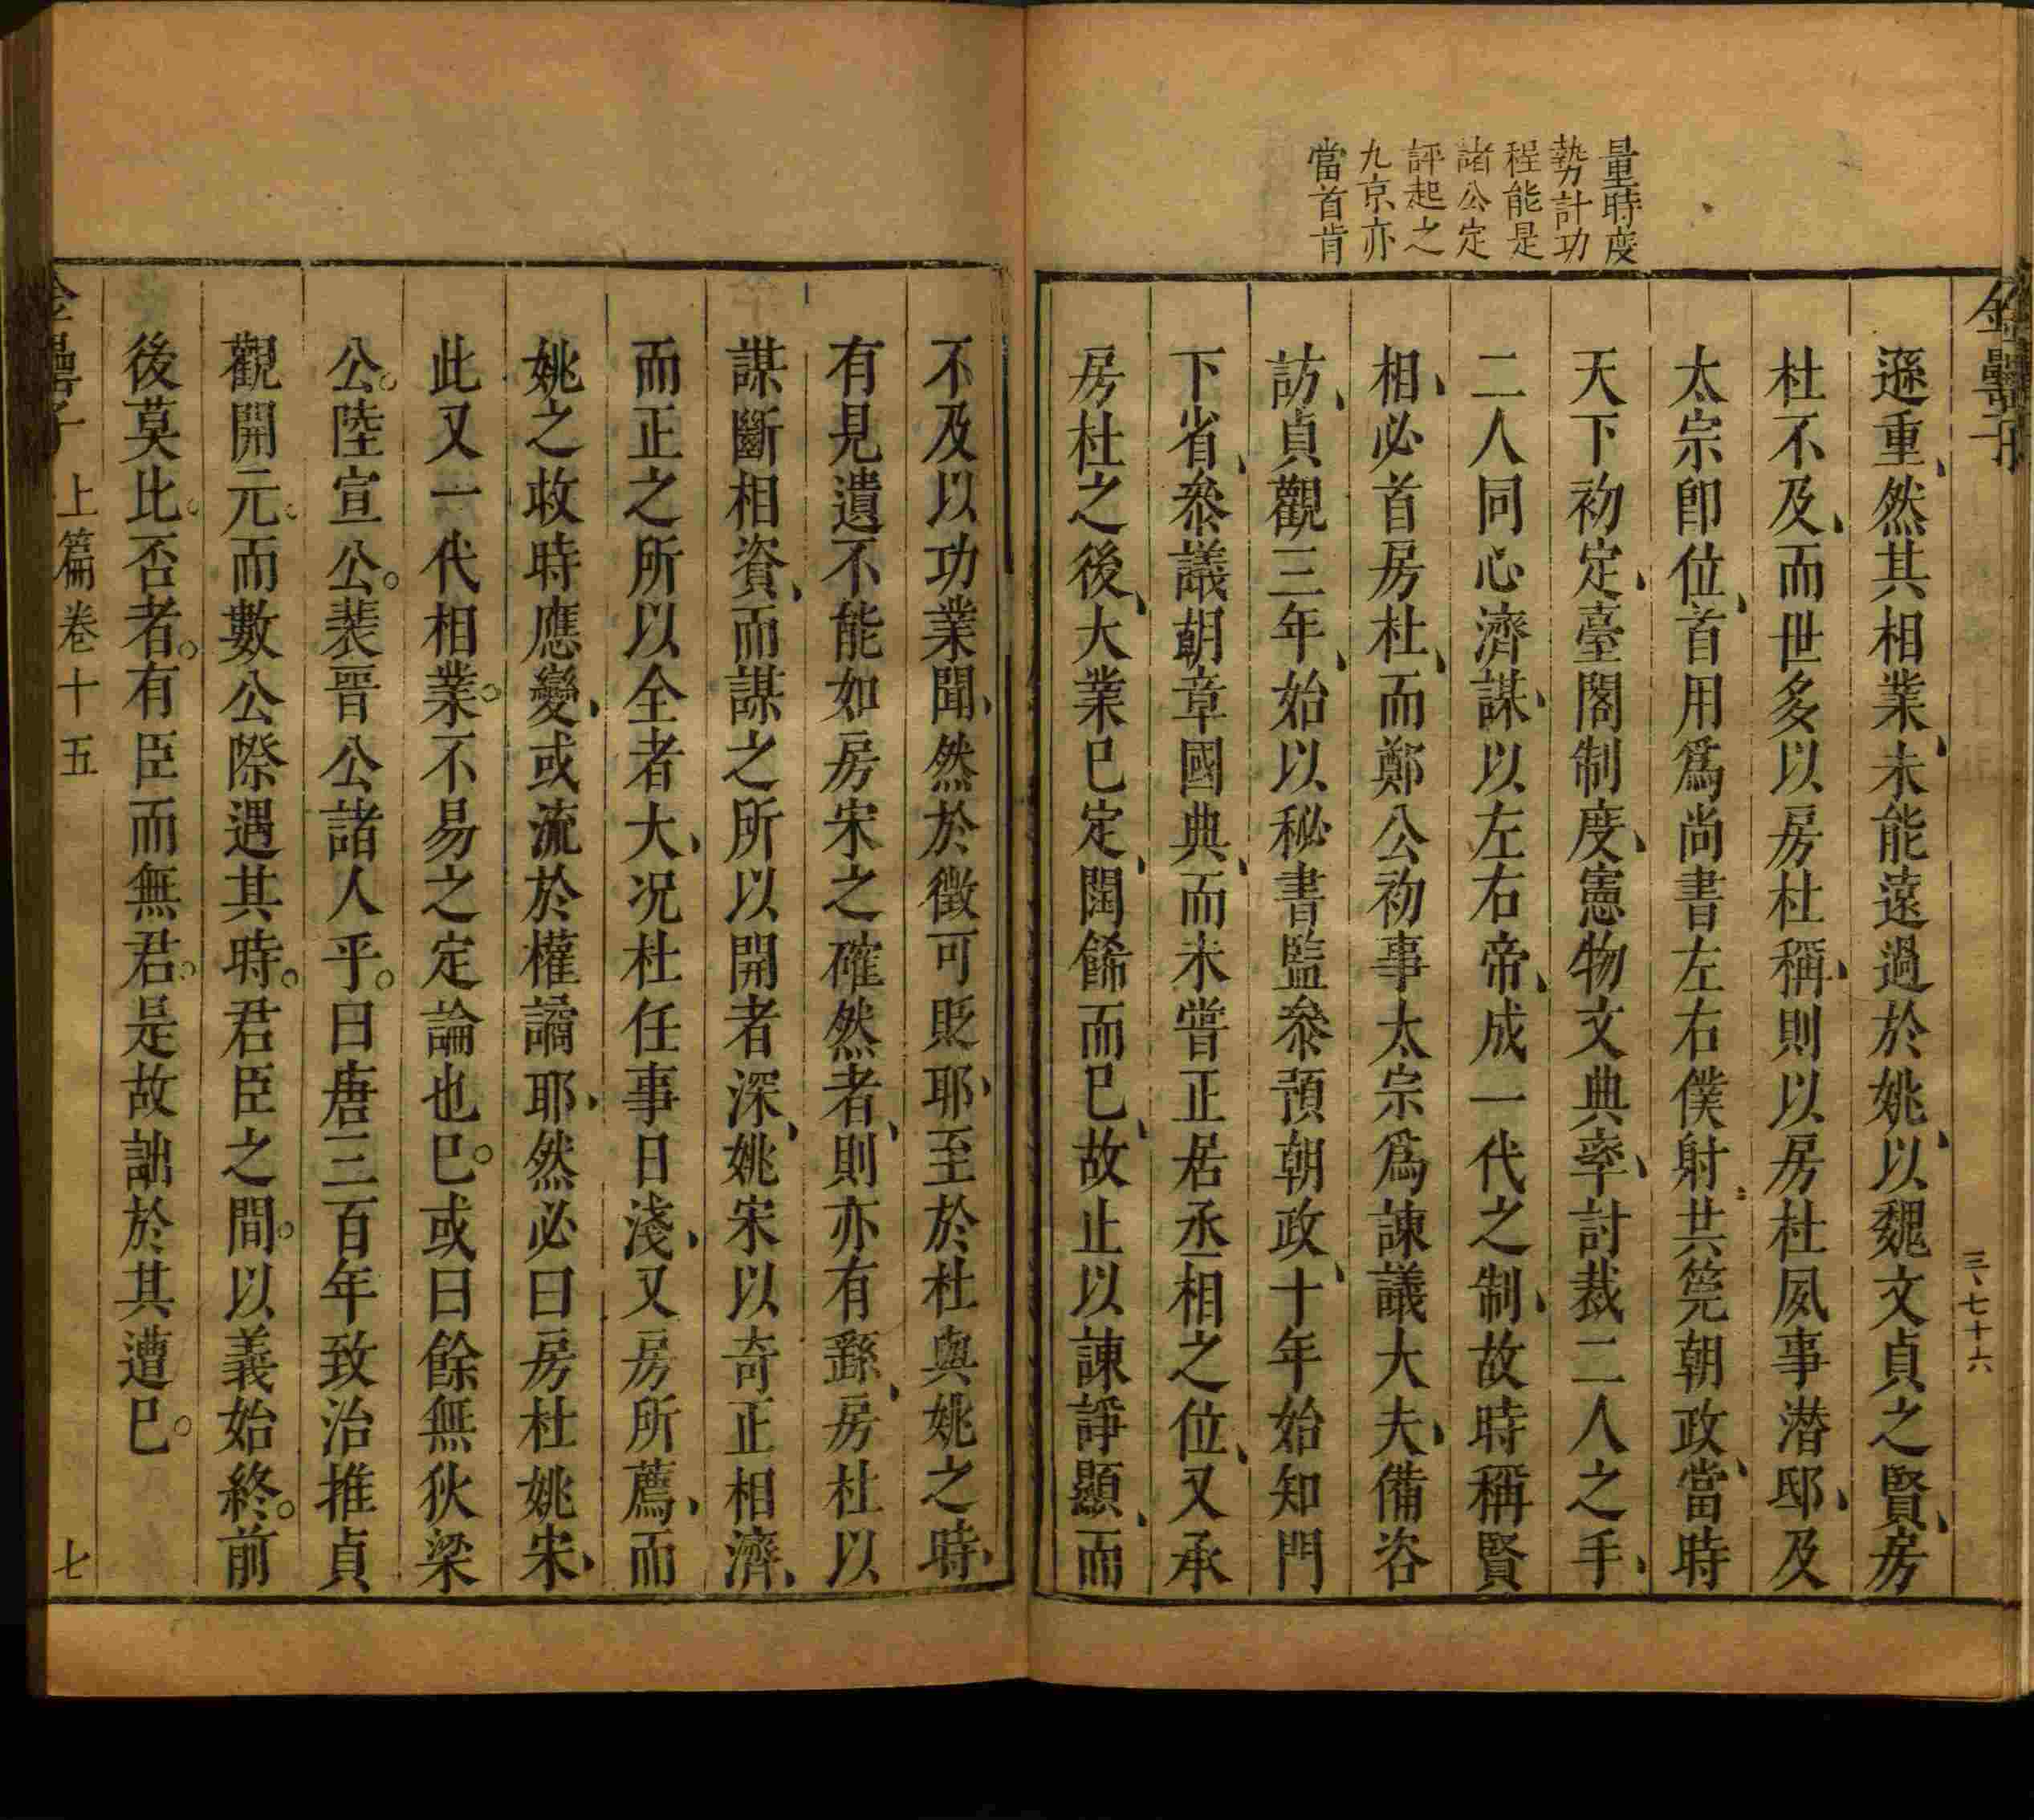 金罍子
三、七十六
量時度
勢計功
程能是
諸公定
評起之
九京亦
當首肯
遜重、然其相業、未能遠過於姚、以魏文貞之賢、房
杜不及、而世多以房杜稱、則以房杜夙事潜邸、及
太宗卽位、首用爲尚書左右僕射、共筦朝政、當時
天下初定、臺閣制度、憲物文典率、討裁二人之手、
二人同心濟謀、以左右帝、成一代之制、故時稱賢
相、必首房杜、而鄭公初事太宗爲諫議大夫、備咨
訪、貞觀三年、始以秘書監叅預朝政、十年始知門
下省、叅議朝章國典、而未嘗正居丞相之位、又承
房杜之後、大業已定、闊餙而已、故止以諫諍顯、而
不及以功業聞、然於徵可貶耶、至於杜與姚之時、
有見遺不能如房宋之確然者、則亦有繇、房杜以
謀斷相資、而謀之所以開者深、姚宋以奇正相濟、
而正之所以全者大、况杜任事日淺、又房所薦、而
姚之救時應變、或流於權譎耶、然必曰房杜姚宋、
此又一代相業。不易之定論也已。或曰餘無狄梁
公。陸宣公。裴晉公諸人乎。曰唐三百年致治推貞
觀開元。而數公際遇其時。君臣之間。以義始終。前
後莫比。否者。有臣而無君。是故詘於其遭已。
金罍子
上篇卷十五
七